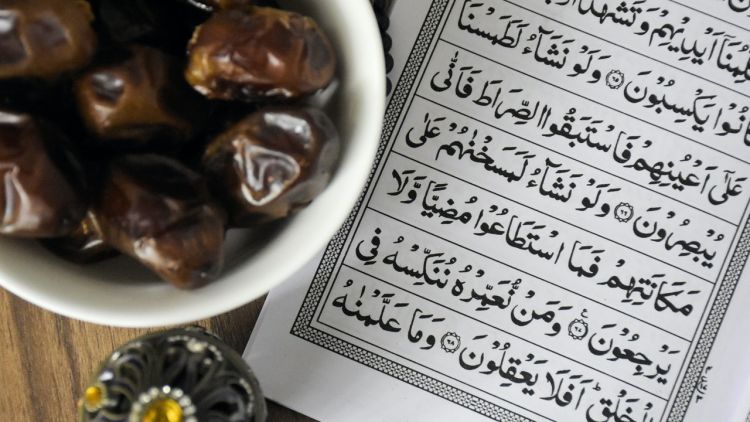 اَيْدِيْهِمْ وَتَشْهَدُ
يَكْسِبُوْنَ ۶۵ وَلَوْ نَشَآءُ لَطَمَسْنَا
عَلٰٓى اَعْيُنِهِمْ فَاسْتَبَقُوا الصِّرَاطَ فَاَنّٰى
يُبْصِرُوْنَ ۶۶ وَلَوْ نَشَآءُ لَمَسَخْنٰهُمْ عَلٰى
مَكَانَتِهِمْ فَمَا اسْتَطَاعُوْا مُضِيًّا وَّلَا
يَرْجِعُوْنَ ۶۷ وَمَنْ نُّعَمِّرْهُ نُنَكِّسْهُ فِى
الْخَلْقِ ؕ اَفَلَا يَعْقِلُوْنَ ۶۸ وَمَا عَلَّمْنٰهُ